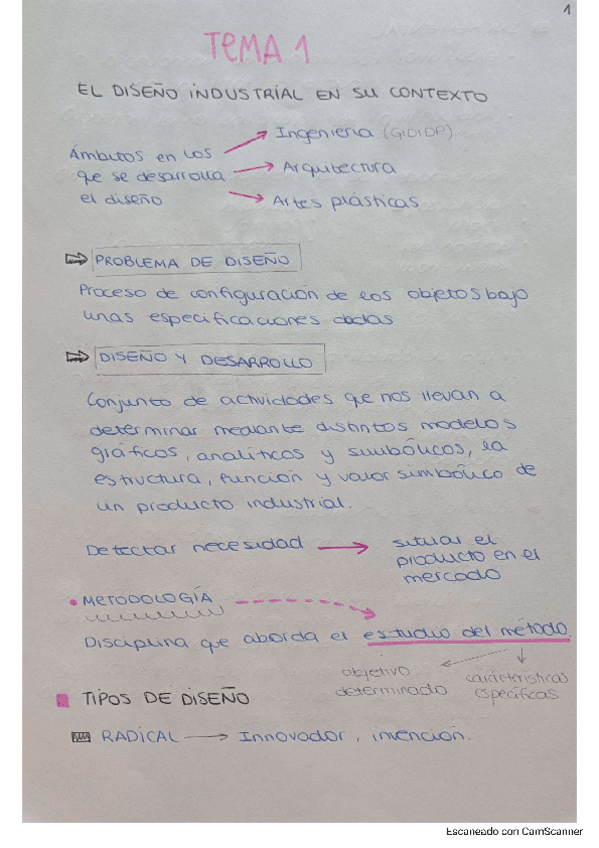 1
TEMA 1
EL DISEÑO INDUSTRIAL EN SU CONTEXTO
Ingeniería (GIDIDP)
Ámbitos en los
que se desarrolla
el diseño
Arquitectura
Artes plásticas
PROBLEMA DE DISEÑO
Proceso de configuración de los objetos bajo
unas especificaciones dadas
DISEÑO Y DESARROLLO
Conjunto de actividades que nos llevan a
determinar mediante distintos modelos
gráficos, analíticos y simbólicos, la
estructura, función y valor simbólico de
un producto industrial.
Detectar necesidad
situar el
producto en el
mercado
METODOLOGÍA
Disciplina que aborda el estudio del método.
objetivo
determinado
características
específicas
TIPOS DE DISEÑO
RADICAL
Innovador, invención.
Escaneado con CamScanner